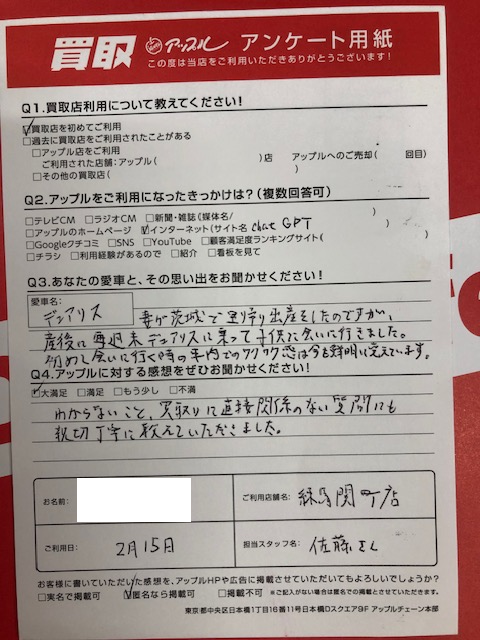 買取 アップル アンケート用紙
この度は当店をご利用いただきありがとうございます!
Q1.買取店利用について教えてください!
☑買取店を初めてご利用
□過去に買取店をご利用されたことがある
□アップル店をご利用
ご利用された店舗:アップル( )店 アップルへのご売却( 回目)
□その他の買取店( )
Q2.アップルをご利用になったきっかけは?(複数回答可)
□テレビCM □ラジオCM □新聞・雑誌(媒体名/ )
□アップルのホームページ ☑インターネット(サイト名 chat GPT )
□Googleクチコミ □SNS □YouTube □顧客満足度ランキングサイト( )
□チラシ □利用経験があるので □紹介 □看板を見て
Q3.あなたの愛車と、その思い出をお聞かせください!
愛車名:
デュアリス 妻が茨城で里帰り出産をしたのですが、
産後に毎週末デュアリスに乗って子供に会いに行きました。
初めて会いに行く時の車内でのワクワク感は今も鮮明に覚えています。
Q4.アップルに対する感想をぜひお聞かせください!
☑大満足 □満足 □もう少し □不満
わからないこと、買取りに直接関係のない質問にも
親切丁寧に教えていただきました。
お名前: ご利用店舗名: 練馬関町店
ご利用日: 2月15日 担当スタッフ名: 佐藤さん
お客様に書いていただいた感想を、アップルHPや広告に掲載させていただいてもよろしいでしょうか?
□実名で掲載可 ☑匿名なら掲載可 □掲載不可 ※ご記入がない場合は匿名での掲載とさせていただきます。
東京都中央区日本橋1丁目16番11号日本橋Dスクエア9F アップルチェーン本部